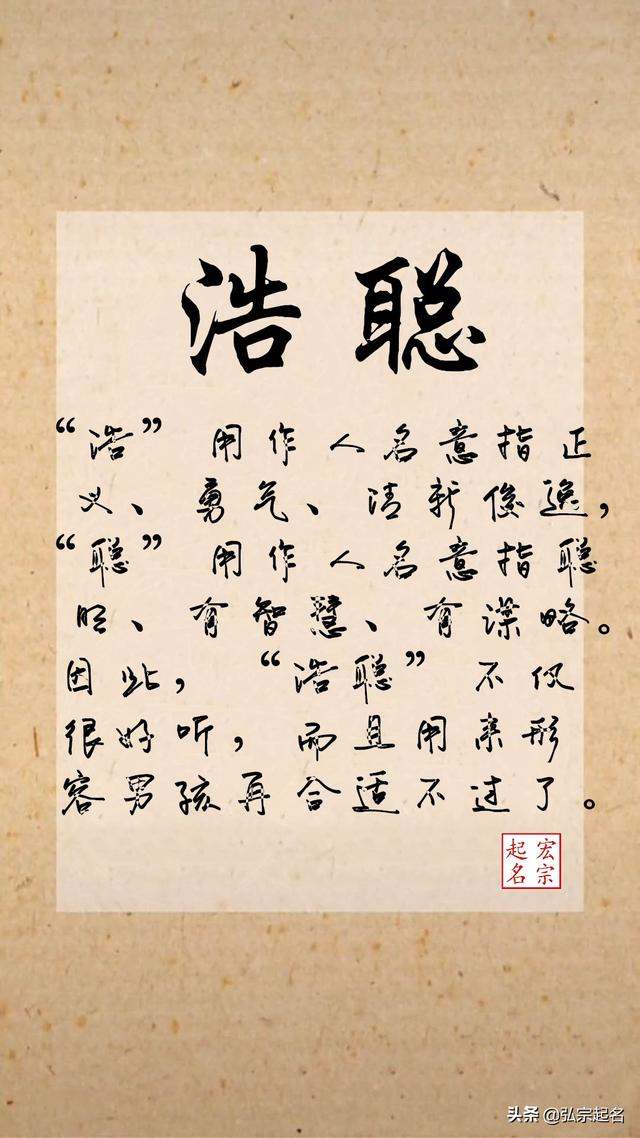 浩聪
“浩”用作人名意指正
义、勇气、清新俊逸，
“聪”用作人名意指聪
明、有智慧、有谋略。
因此，“浩聪”不仅
很好听，而且用来形
容男孩再合适不过了。
宏宗
起名
头条 @弘宗起名